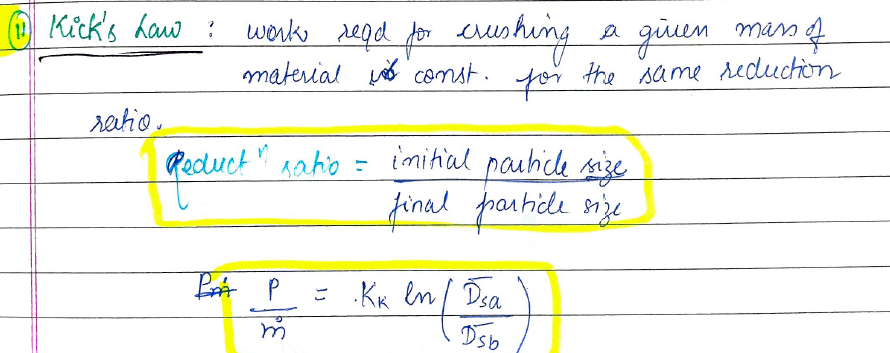 1) Kick's Law : work reqd for crushing a given mass of
material is const. for the same reduction
ratio.
Reductⁿ ratio = initial particle size
final particle size
P/ṁ = K_K ln ( D̄sa / D̄sb )